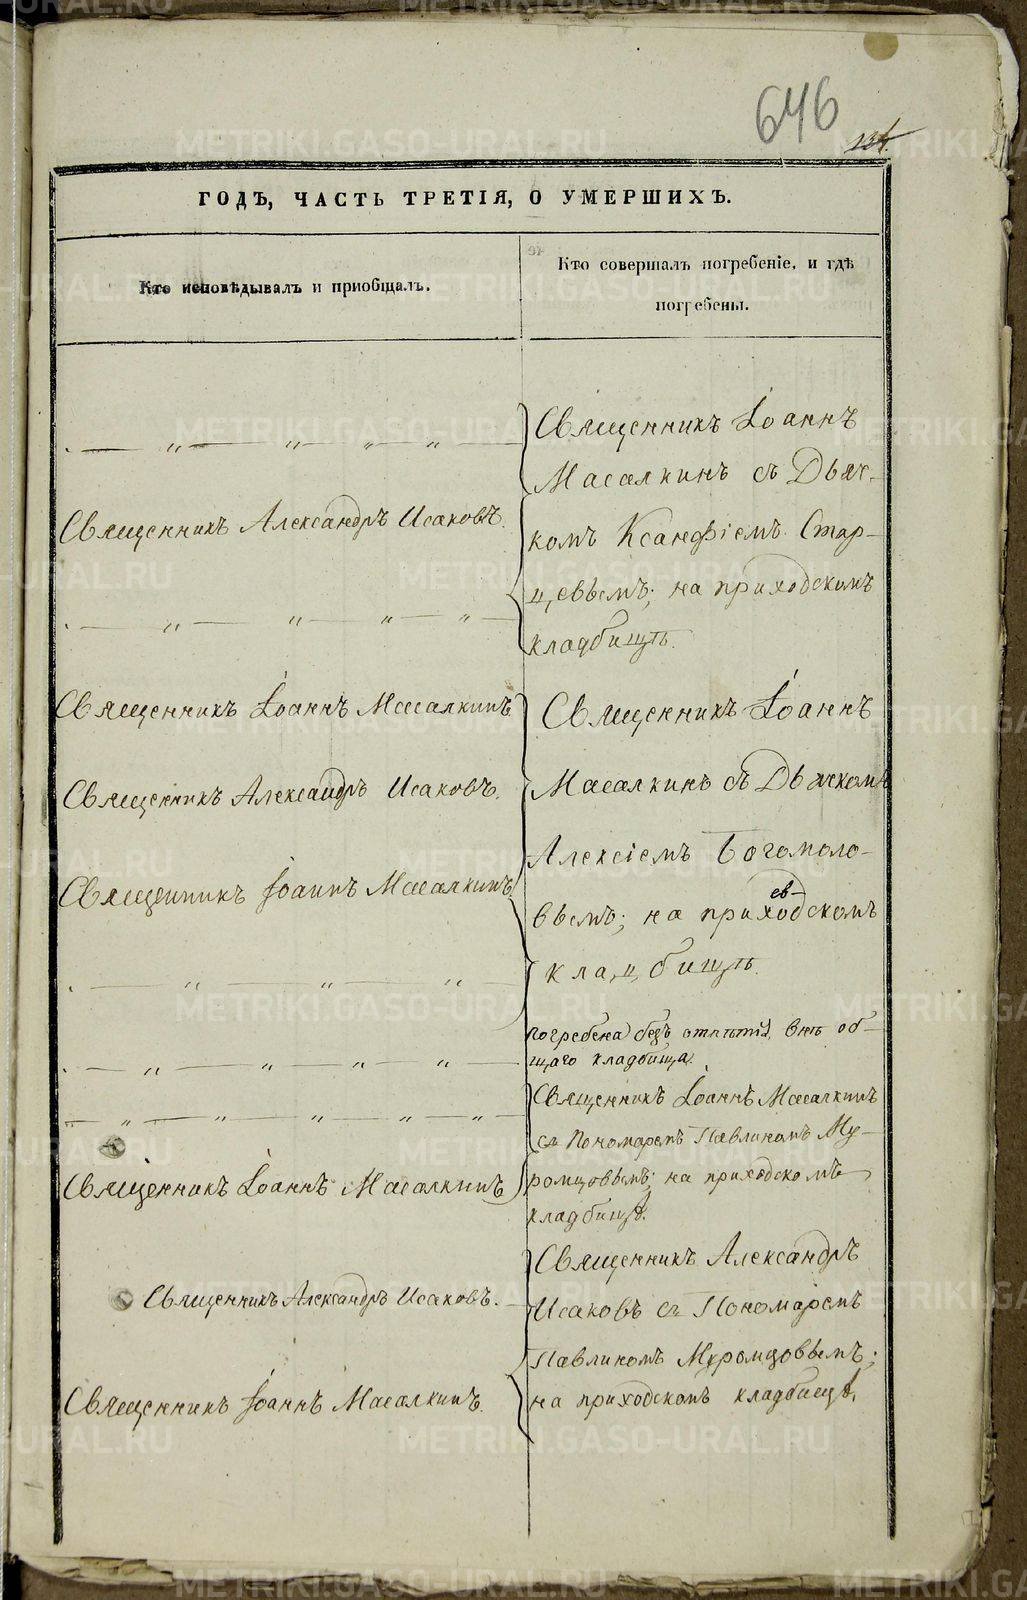 646
134.
ГОДЪ, ЧАСТЬ ТРЕТІЯ, О УМЕРШИХЪ.
Кто исповѣдывалъ и пріобщалъ.
Кто совершалъ погребеніе, и гдѣ
погребены.
Священникъ Іоаннъ
Масалкинъ съ Дьяч-
Священникъ Александръ Исаковъ.
комъ Ксанфіемъ Стар-
цевымъ; на приходскомъ
кладбищѣ.
Священникъ Іоаннъ Масалкинъ
Священникъ Іоаннъ
Священникъ Александръ Исаковъ.
Масалкинъ съ Дьячкомъ
Алексіемъ Богомоло-
Священникъ Іоаннъ Масалкинъ
вымъ; на приходскомъ
кладбищѣ.
погребена безъ отпѣтія, внѣ об-
щаго кладбища.
Священникъ Іоаннъ Масалкинъ
съ Пономаремъ Павлиномъ Му-
Священникъ Іоаннъ Масалкинъ
ромцовымъ; на приходскомъ
кладбищѣ.
Священникъ Александръ
Священникъ Александръ Исаковъ.
Исаковъ съ Пономаремъ
Павлиномъ Муромцовымъ;
Священникъ Іоаннъ Масалкинъ.
на приходскомъ кладбищѣ.
METRIKI.GASO-URAL.RU